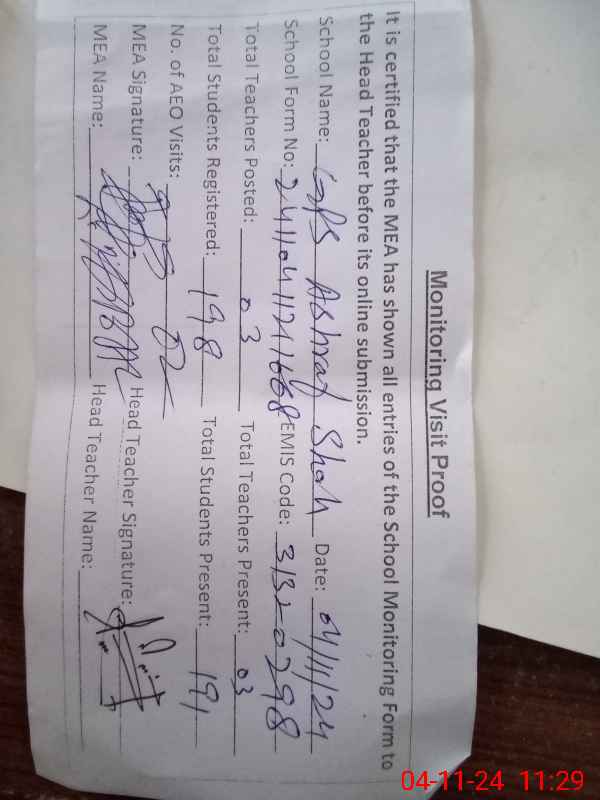 Monitoring Visit Proof
It is certified that the MEA has shown all entries of the School Monitoring Form to
the Head Teacher before its online submission.
School Name: GPS Ashraf Shah Date: 04/11/24
School Form No: EMIS Code: 31320298
Total Teachers Posted: 03 Total Teachers Present: 03
Total Students Registered: 198 Total Students Present: 191
No. of AEO Visits: 02
MEA Signature: Head Teacher Signature:
MEA Name: Head Teacher Name:
04-11-24 11:29